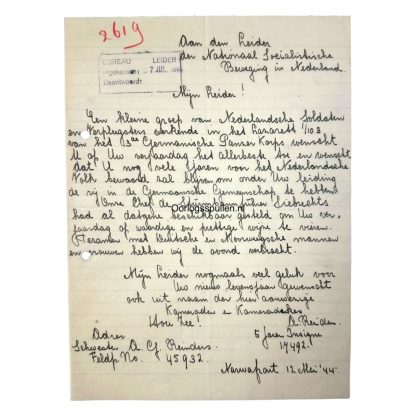 2619
BUREAU LEIDER
Ingekomen: 7 JUN. 1944
Beantwoordt
Aan den Leider
der Nationaal Socialistische
Beweging in Nederland.
Mijn Leider!
Een kleine groep van Nederlandsche Soldaten
en Verpleegsters werkende in het 103
van het 3de Germanische Panzer Korps wenscht
U op Uw verjaardag het allerbeste toe en wenscht
dat U nog vele Jaren voor het Nederlandsche
Volk bewaard zal blijven om onder Uw leiding
de zij in de Germaansche Gemeenschap te hebben.
Onze Chef de Sturmbannführer Siebrechts
had al datgene beschikbaar gesteld om Uw ver-
jaardag op waardige en prettige wijze te vieren.
Tezamen met Duitsche en Noorweegsche mannen
en vrouwen hebben wij de avond verbracht.
Oorlogsspullen.nl
Mijn Leider nogmaals veel geluk voor
Uw nieuw levensjaar gewenscht
ook uit naam der hier aanwezige
Kameraden en Kameraadskes
Hou Zee!
A. Reinders.
5 Jaren Insigne
17492.
Adres
Schwester A. Cf. Reinders
Feldp. No. 45932.
12 Mei '44.